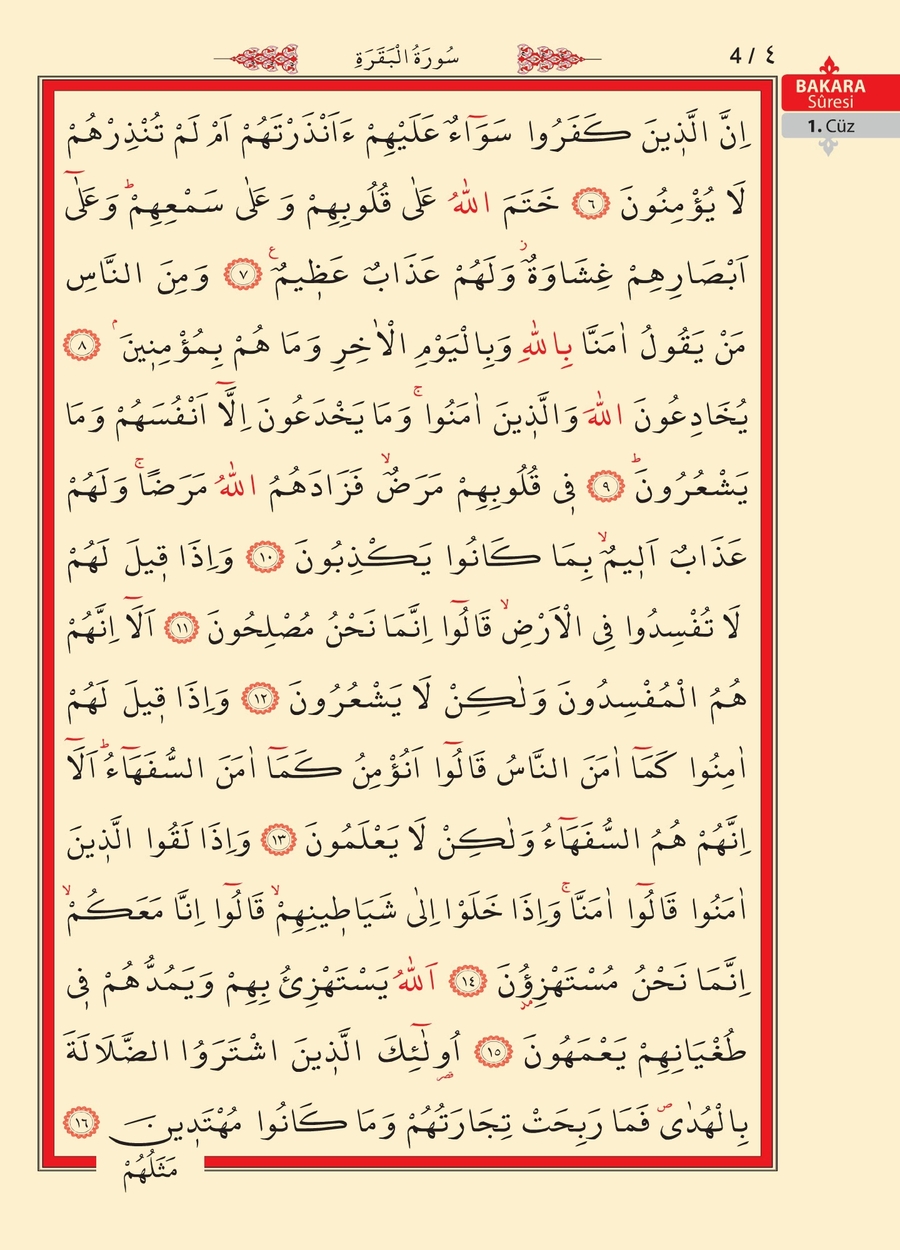 4 / ٤
سُورَةُ الْبَقَرَةِ
BAKARA
Sûresi
1. Cüz
اِنَّ الَّذ۪ينَ كَفَرُوا سَوَٓاءٌ عَلَيْهِمْ ءَاَنْذَرْتَهُمْ اَمْ لَمْ تُنْذِرْهُمْ
لَا يُؤْمِنُونَ ﴿٦﴾ خَتَمَ اللّٰهُ عَلٰى قُلُوبِهِمْ وَ عَلٰى سَمْعِهِمْۜ وَعَلٰٓى
اَبْصَارِهِمْ غِشَاوَةٌۘ وَلَهُمْ عَذَابٌ عَظ۪يمٌ۟ ﴿٧﴾ وَمِنَ النَّاسِ
مَنْ يَقُولُ اٰمَنَّا بِاللّٰهِ وَبِالْيَوْمِ الْاٰخِرِ وَمَا هُمْ بِمُؤْمِن۪ينَۢ ﴿٨﴾
يُخَادِعُونَ اللّٰهَ وَالَّذ۪ينَ اٰمَنُواۚ وَمَا يَخْدَعُونَ اِلَّٓا اَنْفُسَهُمْ وَمَا
يَشْعُرُونَۜ ﴿٩﴾ ف۪ي قُلُوبِهِمْ مَرَضٌۙ فَزَادَهُمُ اللّٰهُ مَرَضًاۚ وَلَهُمْ
عَذَابٌ اَل۪يمٌۙ بِمَا كَانُوا يَكْذِبُونَ ﴿١٠﴾ وَاِذَا ق۪يلَ لَهُمْ
لَا تُفْسِدُوا فِي الْاَرْضِۙ قَالُٓوا اِنَّمَا نَحْنُ مُصْلِحُونَ ﴿١١﴾ اَلَٓا اِنَّهُمْ
هُمُ الْمُفْسِدُونَ وَلٰكِنْ لَا يَشْعُرُونَ ﴿١٢﴾ وَاِذَا ق۪يلَ لَهُمْ
اٰمِنُوا كَمَٓا اٰمَنَ النَّاسُ قَالُٓوا اَنُؤْمِنُ كَمَٓا اٰمَنَ السُّفَهَٓاءُۜ اَلَٓا
اِنَّهُمْ هُمُ السُّفَهَٓاءُ وَلٰكِنْ لَا يَعْلَمُونَ ﴿١٣﴾ وَاِذَا لَقُوا الَّذ۪ينَ
اٰمَنُوا قَالُٓوا اٰمَنَّاۚ وَاِذَا خَلَوْا اِلٰى شَيَاط۪ينِهِمْۙ قَالُٓوا اِنَّا مَعَكُمْۙ
اِنَّمَا نَحْنُ مُسْتَهْزِؤُ۫نَ ﴿١٤﴾ اَللّٰهُ يَسْتَهْزِئُ بِهِمْ وَيَمُدُّهُمْ ف۪ي
طُغْيَانِهِمْ يَعْمَهُونَ ﴿١٥﴾ اُو۬لٰٓئِكَ الَّذ۪ينَ اشْتَرَوُا الضَّلَالَةَ
بِالْهُدٰىۖ فَمَا رَبِحَتْ تِجَارَتُهُمْ وَمَا كَانُوا مُهْتَد۪ينَ ﴿١٦﴾
مَثَلُهُمْ